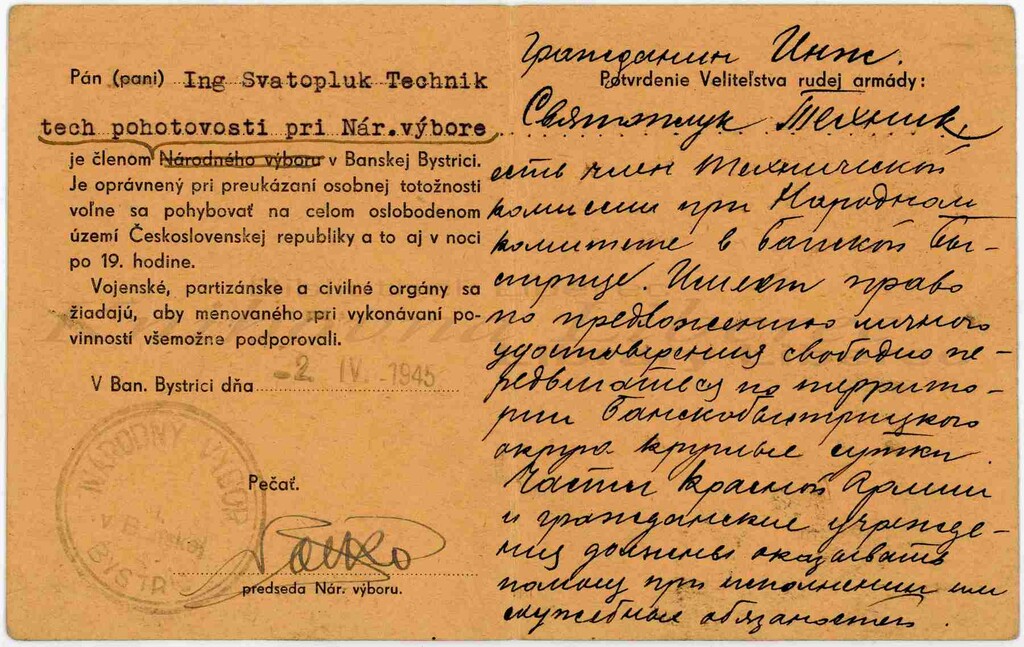 Pán (pani) Ing Svatopluk Technik
tech pohotovosti pri Nár.výbore
je členom Národného výboru v Banskej Bystrici.
Je oprávnený pri preukázaní osobnej totožnosti
voľne sa pohybovať na celom oslobodenom
území Československej republiky a to aj v noci
po 19. hodine.
Vojenské, partizánske a civilné orgány sa
žiadajú, aby menovaného pri vykonávaní po-
vinností všemožne podporovali.
V Ban. Bystrici dňa -2. IV. 1945
NÁRODNÝ VÝBOR
Pečať.
predseda Nár. výboru.
Гражданин Инж.
Potvrdenie Veliteľstva rudej armády:
Святоплук Техник,
есть член Технической
комиссии при Народном
комитете в Банской Бы-
стрице. Имеет право
по предложению личного
удостоверения свободно пе-
редвигаться по террито-
рии Банскобыстрицкого
округа круглые сутки.
Части Красной Армии
и гражданские учрежде-
ния должны оказывать
помощь при исполнении им
служебных обязаностей.